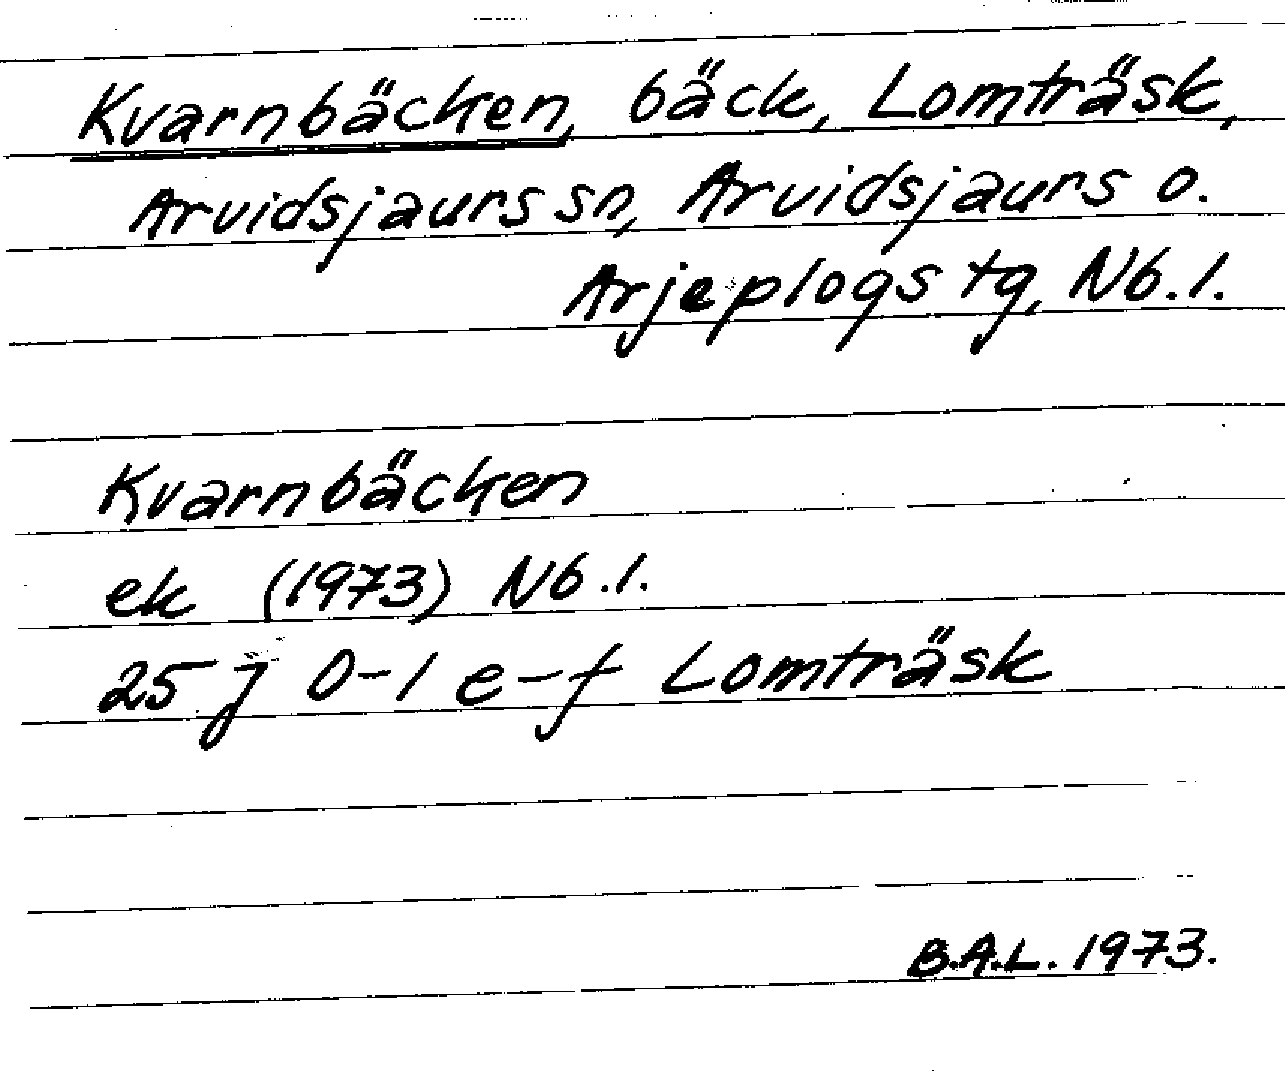 Kvarnbäcken, bäck, Lomträsk,
Arvidsjaurs sn, Arvidsjaurs o.
Arjeplogs tg, Nb.l.
Kvarnbäcken
ek (1973) Nb.l.
25 j 0-1 e-f Lomträsk
B.A.L. 1973.